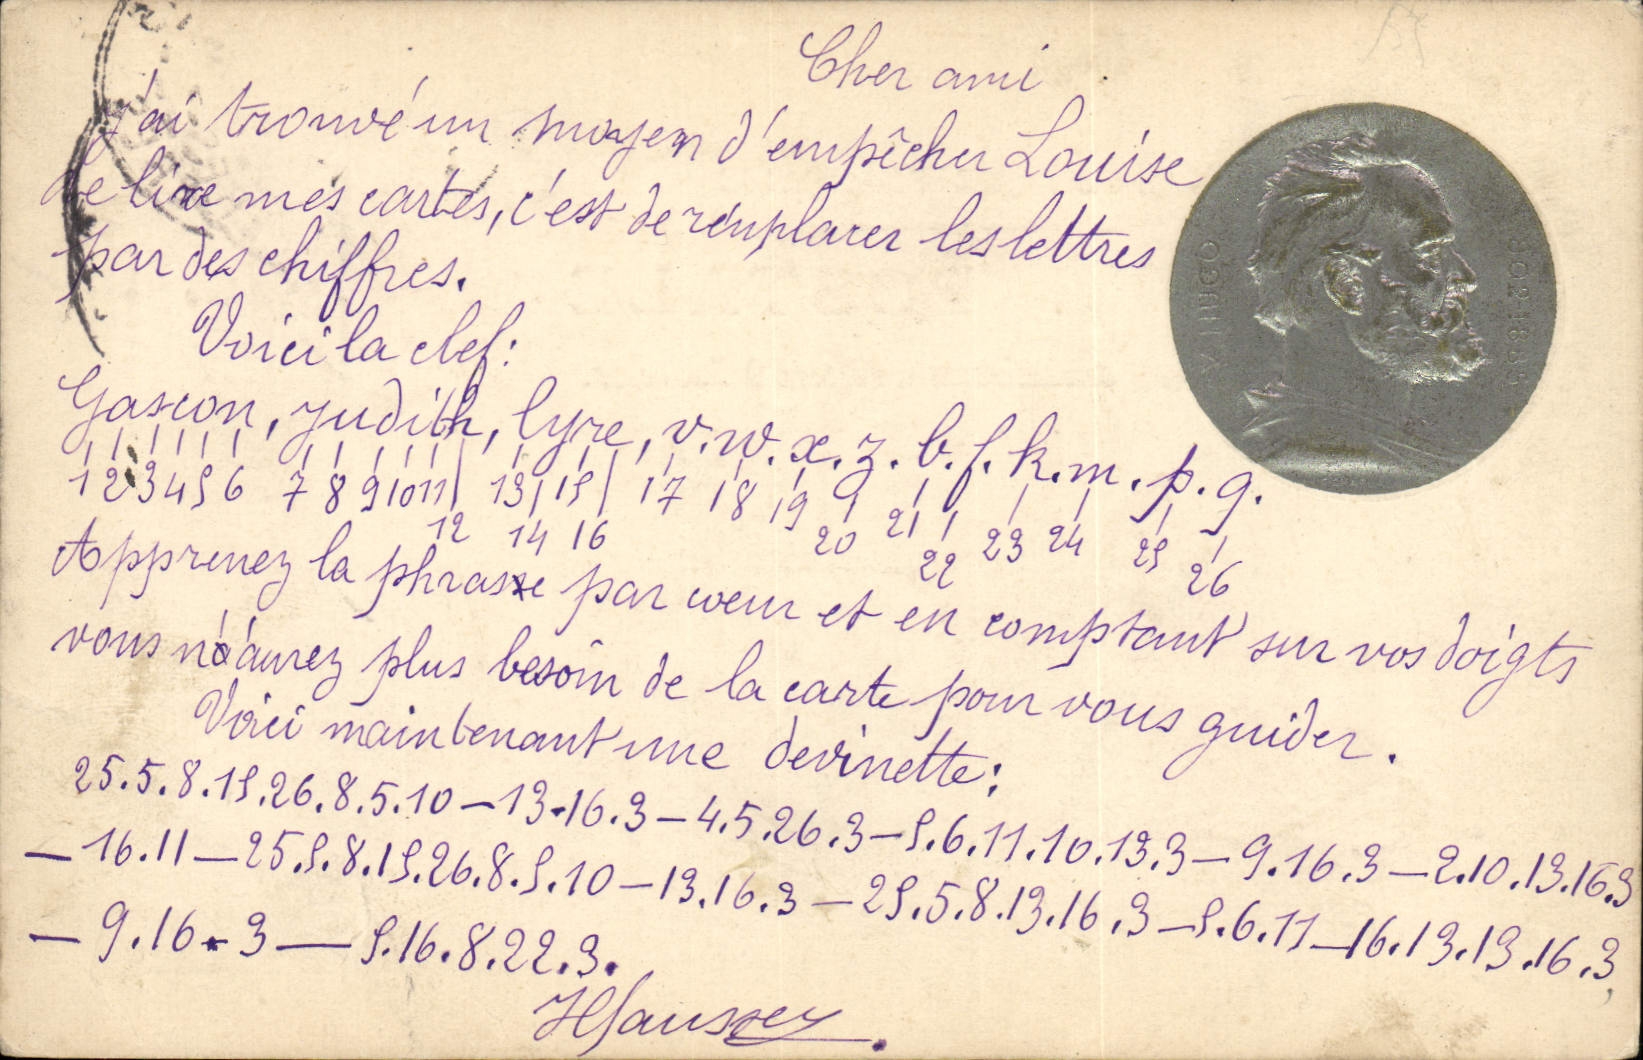 Cher ami
j'ai trouvé un moyen d'empêcher Louise
de lire mes cartes, c'est de remplacer les lettres
par des chiffres.
Voici la clef:
Gascon, judith, lyre, v. w. x. z. b. f. k. m. p. q.
1 2 3 4 5 6 7 8 9 10 11 12 13 14 15 16 17 18 19 20 21 22 23 24 25 26
Apprenez la phrase par cœur et en comptant sur vos doigts
vous n'aurez plus besoin de la carte pour vous guider.
Voici maintenant une devinette:
25.5.8.15.26.8.5.10 – 13.16.3 – 4.5.26.3 – 5.6.11.10.13.3 – 9.16.3 – 2.10.13.16.3
– 16.11 – 25.5.8.15.26.8.5.10 – 13.16.3 – 25.5.8.13.16.3 – 5.6.11 – 16.13.13.16.3
– 9.16.3 – 5.16.8.22.3.
V. HUGO
1802 1885